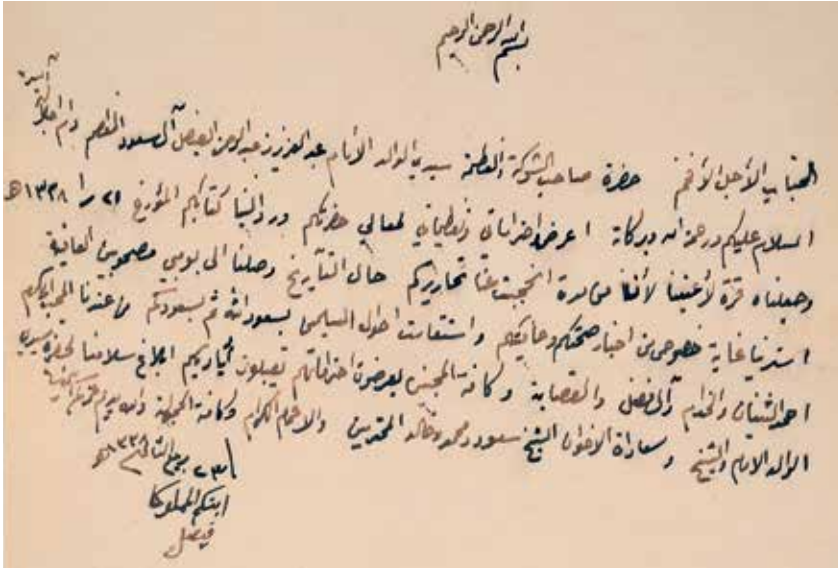 بسم الله الرحمن الرحيم
الجناب الأجل الأفخم حضرة صاحب الشوكة والعظمة سيدي الوالد الأمام عبدالعزيز عبدالرحمن الفيصل آل سعود المعظم دام اجلاله آمين
السلام عليكم ورحمة الله وبركاته اعرض احتراماتي وتعظيماتي لمعالي حضرتكم ورد الينا كتابكم المؤرخ ٢١ را ١٣٣٨ هـ
وجعلناه قرة لأعيننا لأننا من مدة انحجبت عنا تحاريركم حال التأريخ وصلنا الى بومبي مصحوبين العافية
استرينا غاية خصوص من اخبار صحتكم وعافيتكم واستقامت احوال المسلمين بسعود الله ثم بسعودكم من عندنا المحب
احمد الثنيان والخدام وآل فضل والقصابة وكافة المحبين يعرضون احتراماتهم يقبلون أياديكم ابلاغ سلامنا لحضرة سيدي
الوالد الامام والشيخ وسعادة الاخوان الشيخ سعود ومحمد وخالد المحترمين والاعمام الكرام وكافة
٢٣ ربيع الثاني ١٣٣٨ هـ
ابنكم المملوك
فيصل